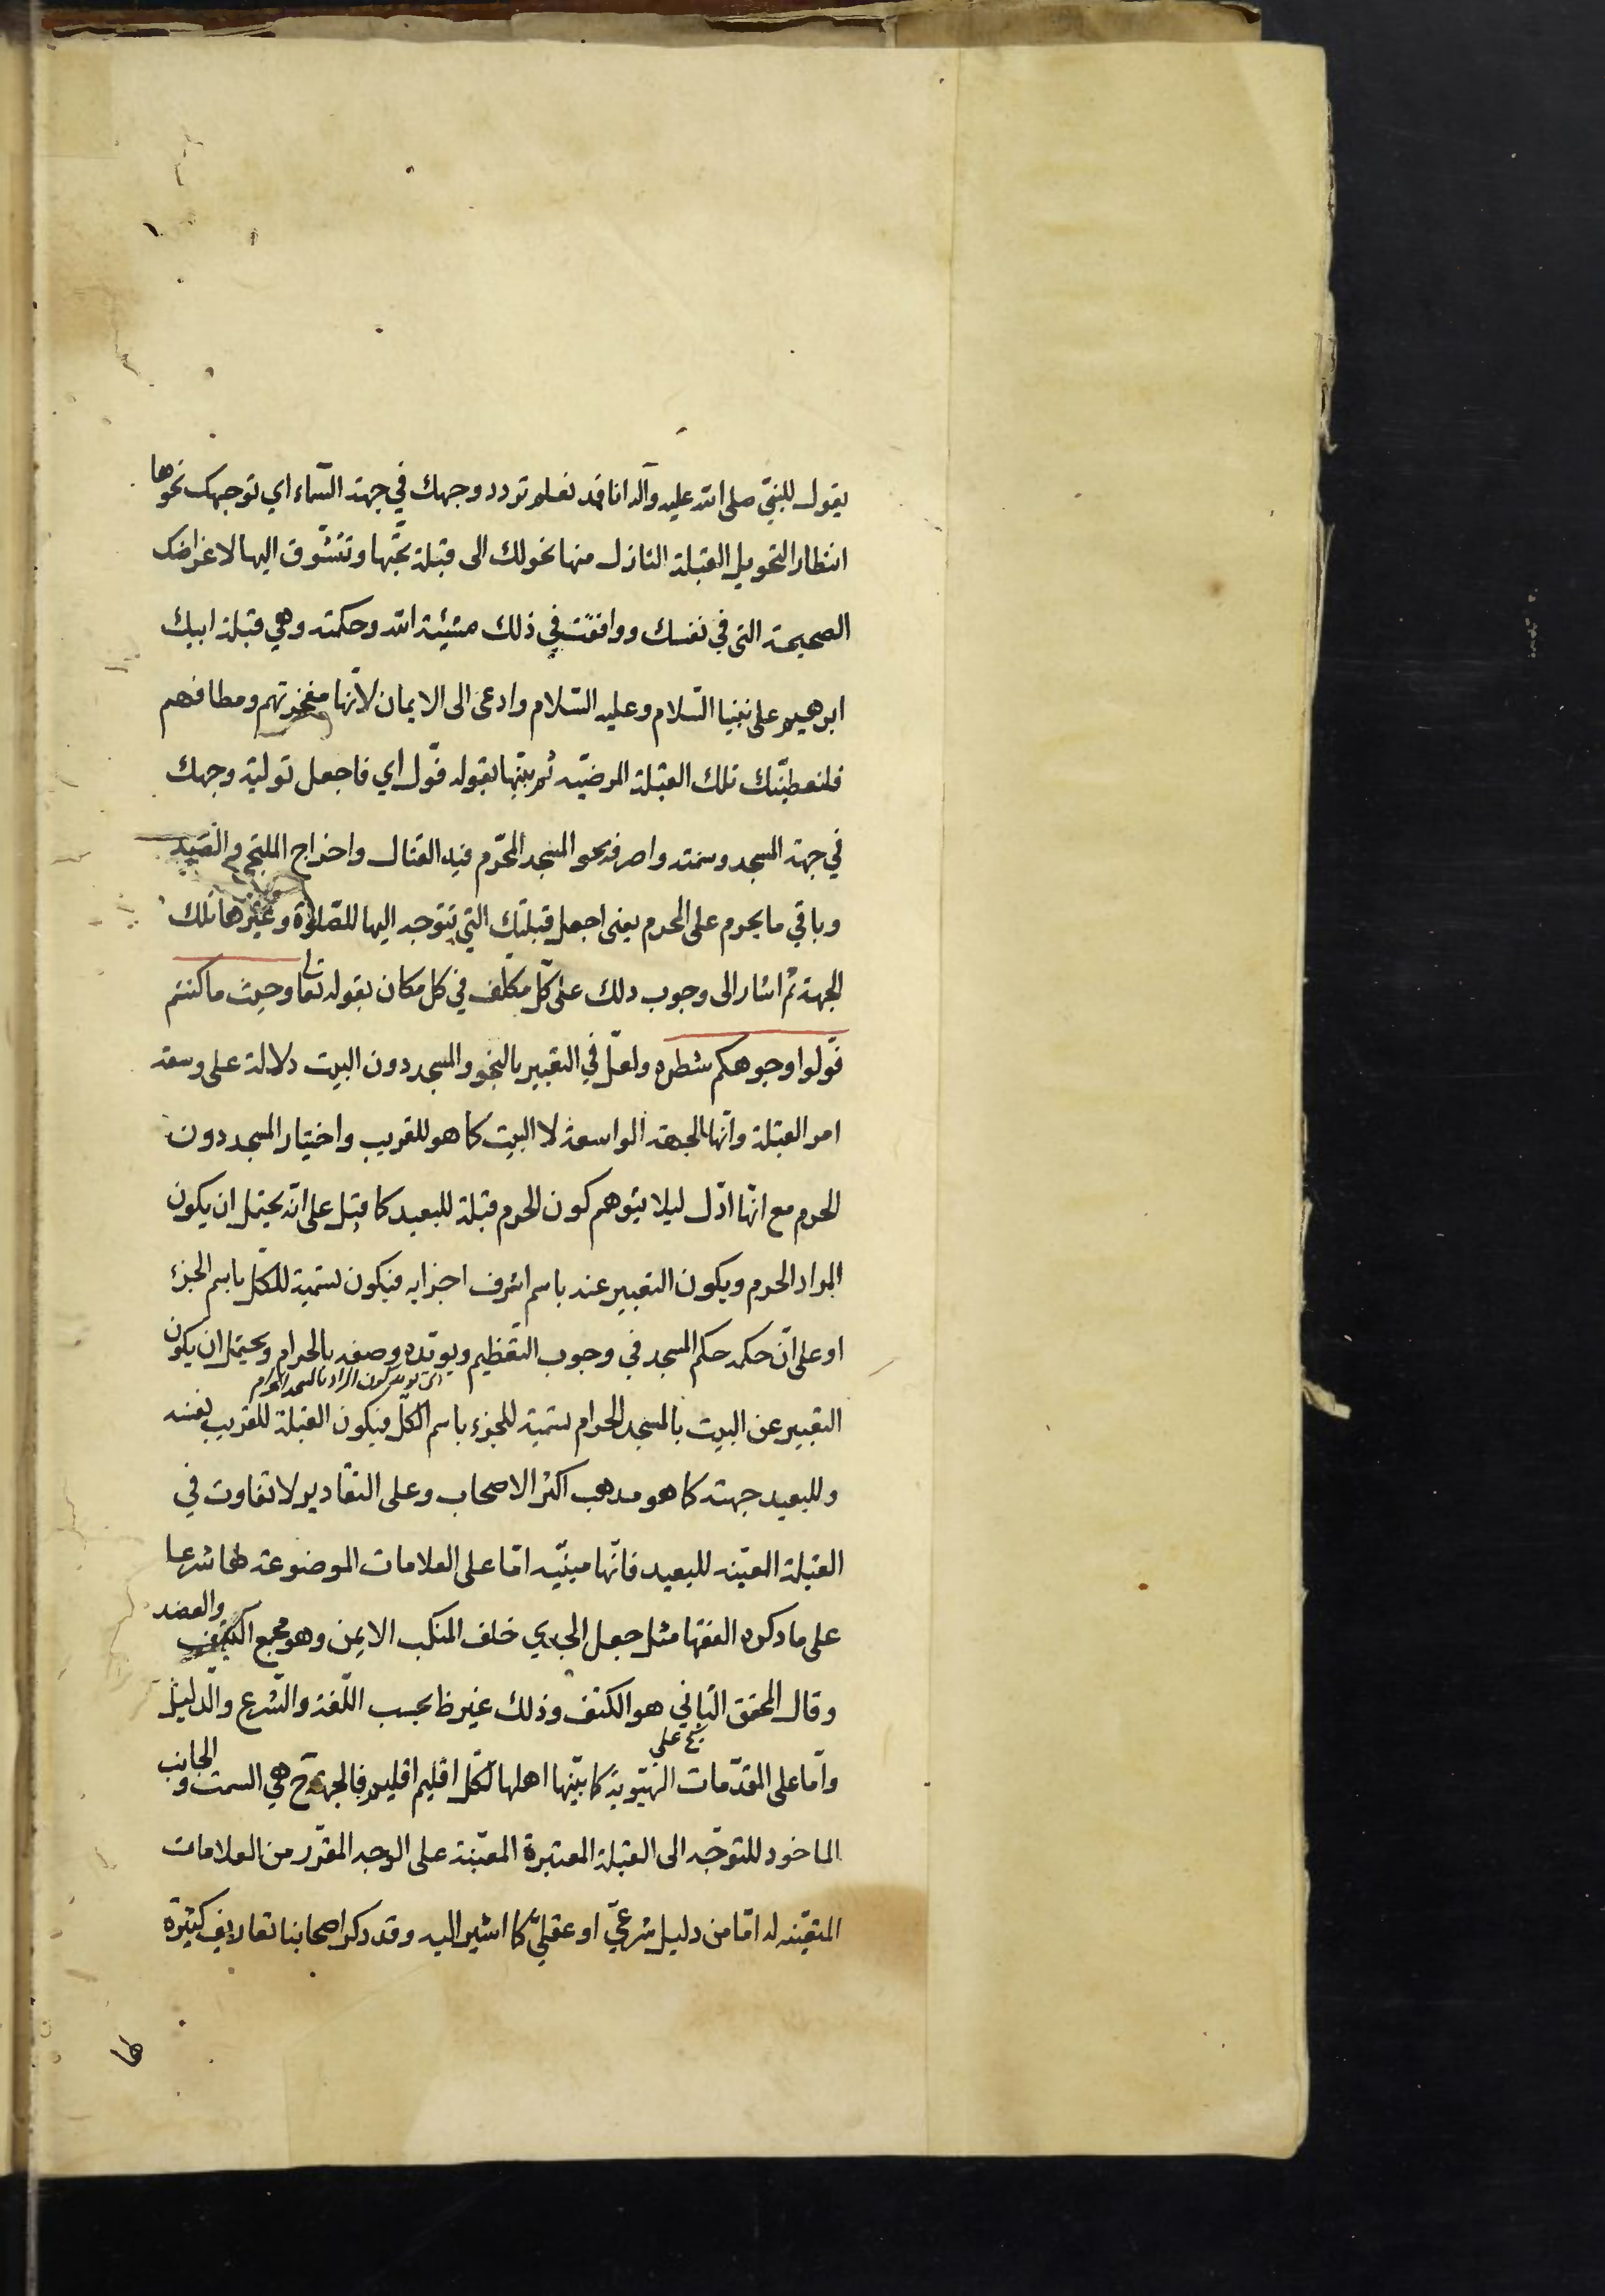 يقول للنبيّ صلى الله عليه وآله انا قد نعلم تردد وجهك في جهة السّماء اي توجهك نحوها
انتظار التحويل القبلة النازل منها نحولك الى قبلة تحبّها وتتشوّق اليها لاغراضك
الصحيحة التى في نفسك ووافقت في ذلك مشيئة الله وحكمته وهي قبلة ابيك
ابرهيم على نبينا السّلام وعليه السّلام وادعى الى الايمان لانّها مفخرتهم ومطافهم
فلنعطينّك تلك القبلة المرضيّه ثم بيّنها بقوله فوّل اي فاجعل تولية وجهك
في جهة المسجد وسمته واصرفه نحو المسجد المحّرم فيه القتال واخراج الملتجي والصّيد
وباقي ما يحرم على المحرم يعنى اجعل قبلتك التي تتوجه اليها للصّلوة وغيرها تلك
الجهة ثم اشار الى وجوب دلك على كلّ مكلّف في كل مكان بقوله تعا وحيث ما كنتم
فوّلوا وجوهكم شطره ولعلّ في التعبير بالنحو والمسجد دون البيت دلالة على وسعة
امر القبلة وانّها الجهة الواسعة لا البيت كما هو للقريب واختيار المسجد دون
الحرم مع انّها ادّل ليلا يتوهم كون الحرم قبلة للبعيد كما قيل على انّه يحتمل ان يكون
المراد الحرم ويكون التعبير عنه باسم اشرف اجزايه فيكون تسمية للكلّ باسم الجزء
او على انّ حكمه حكم المسجد في وجوب التّعظيم ويويّده وصفه بالحرام ويحتمل ان يكون
اى يويد كون المراد بالمسجد الحرام
التعبير عن البيت بالمسجد الحرام تسمية للجزء باسم الكلّ فيكون القبلة للقريب نفسه
وللبعيد جهته كما هو مدهب اكثر الاصحاب وعلى التقادير لا تفاوت في
القبلة المعيّنه للبعيد فانّها مبنيّه امّا على العلامات الموضوعة لها شرعا
على ما دكره الفقها مثل جعل الجدي خلف المنكب الايمن وهو مجمع الكتف والعضد
وقال المحقق الثاني هو الكتف وذلك غير ظ بحسب اللّغة والشّرع والدّليل
وامّا على المقدّمات الهيّويّة كما بيّنها اهلها لكلّ اقليم اقليم فالجهة ح هي السمت والجانب
الماخود للتوجّه الى القبلة المعتبرة المعيّنة على الوجه المقرّر من العلامات
المتعيّنه له امّا من دليل شرعيّ او عقليّ كما اشير اليه وقد دكر اصحابنا تعاريف كثيرة
لها